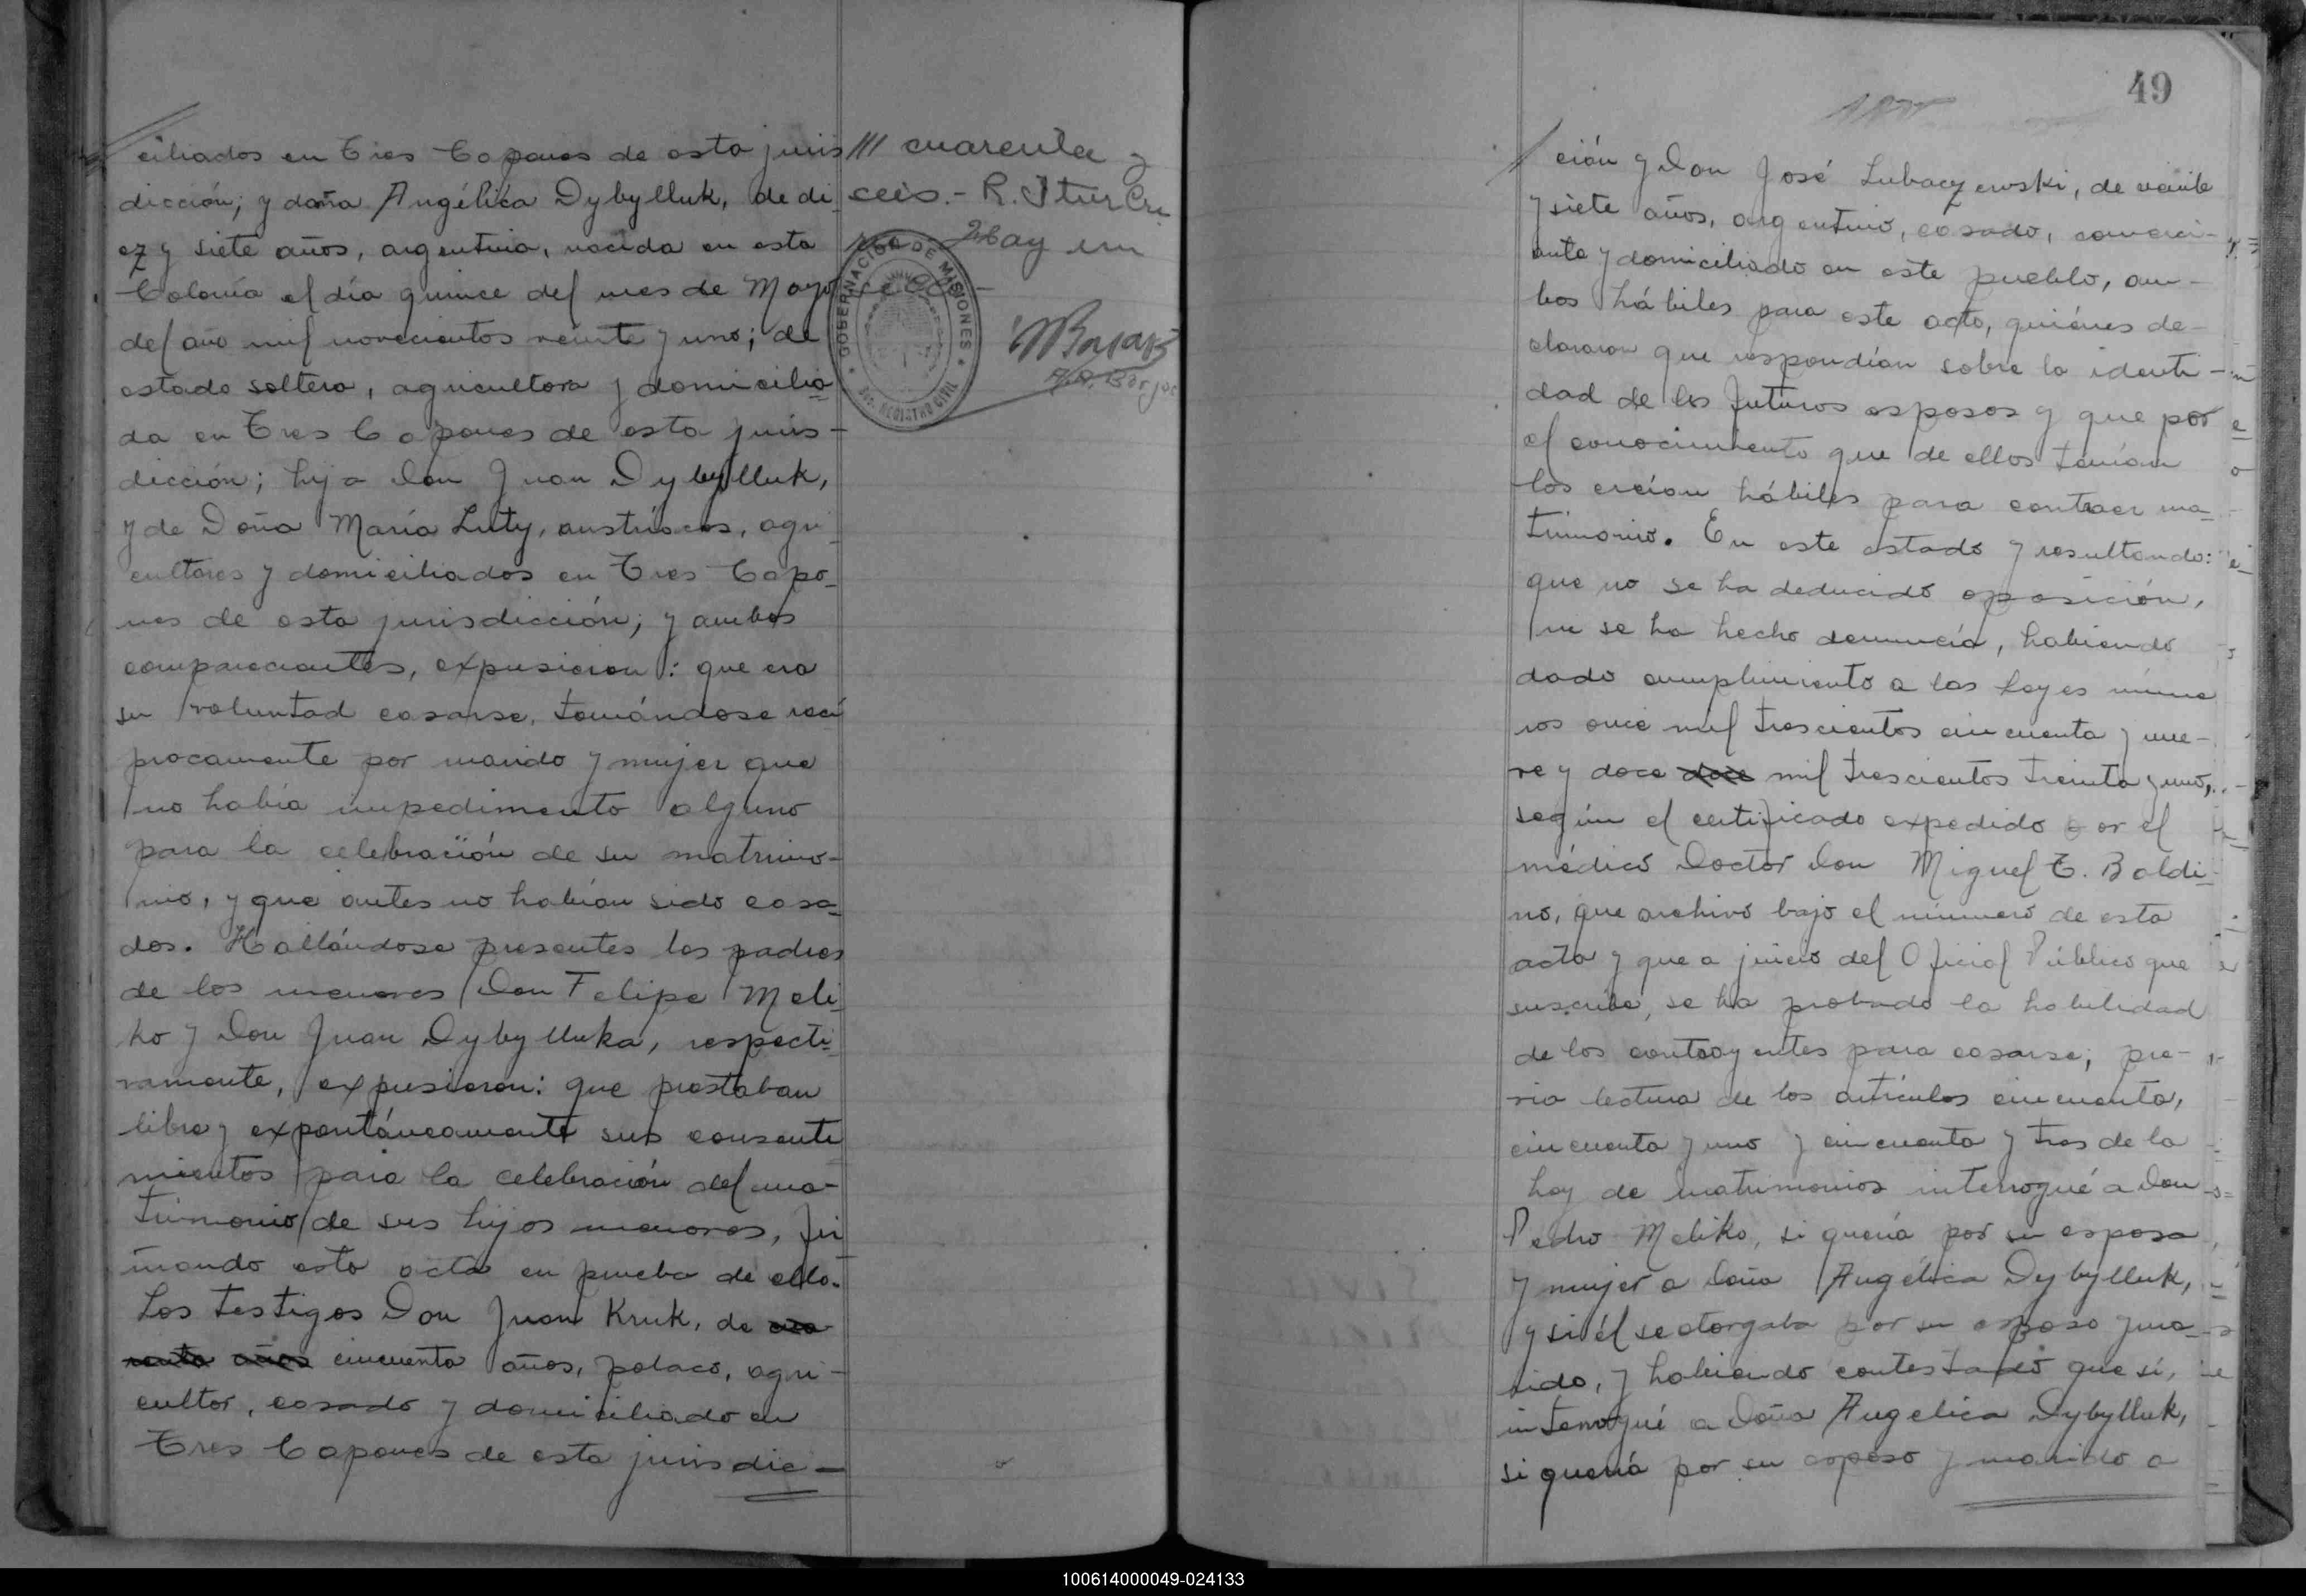 ciliados en Tres Capones de esta juris
dicción; y doña Angélica Dybylluk, de di
ez y siete años, argentina, nacida en esta
Colonia el día quince del mes de Mayo
del año mil novecientos veinte y uno; de
estado soltera, agricultora y domicilia
da en Tres Capones de esta juris-
dicción; hija Don Juan Dybylluk,
y de Doña María Luty, austríacos, agri
cultores y domiciliados en Tres Capo-
nes de esta jurisdicción; y ambos
comparecientes, expusieron: que era
su voluntad casarse, tomándose reci
procamente por marido y mujer que
no había impedimento alguno
para la celebración de su matrimo-
nio, y que antes no habían sido casa
dos. Hallándose presentes los padres
de los menores Don Felipe Meli
ko y Don Juan Dybylluka, respecti
vamente, expusieron: que prestaban
libre y expontáneamente sus consenti
mientos para la celebración del ma-
trimonio de sus hijos menores, fir
mando esta acta en prueba de ello.
Los testigos Don Juan Kruk, de
cincuenta años, polaco, agri-
cultor, casado y domiciliado en
Tres Capones de esta jurisdic-
/// cuarenta y
seis.- R. Itur
GOBERNACION DE MISIONES
REGISTRO CIVIL
49
ción y Don José Lubaczewski, de veinte
y siete años, argentino, casado, comerci-
ante y domiciliado en este pueblo, am-
bos hábiles para este acto, quiénes de-
clararon que respondían sobre la identi-
dad de los futuros esposos y que por
el conocimiento que de ellos tenían
los creían hábiles para contraer ma-
trimonio. En este estado y resultando:
que no se ha deducido oposición,
ni se ha hecho denuncia, habiendo
dado cumplimiento a las leyes núme
ros once mil trescientos cincuenta y nue-
ve y doce doce mil trescientos treinta y uno,
según el certificado expedido por el
médico Doctor Don Miguel T. Baldi-
no, que archivo bajo el número de esta
acta y que a juicio del Oficial Público que
suscribe, se ha probado la habilidad
de los contrayentes para casarse; pre-
via lectura de los artículos cincuenta,
cincuenta y uno y cincuenta y tres de la
Ley de matrimonios interrogué a Don
Pedro Meliko, si quería por su esposa
y mujer a Doña Angélica Dybylluk,
y si él se otorgaba por su esposo y ma-
rido, y habiendo contestado que sí,
interrogué a Doña Angelica Dybylluk,
si quería por su esposo y marido a
100614000049-024133